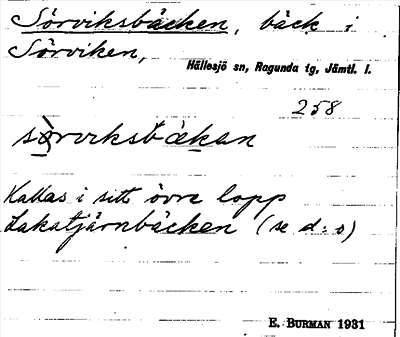 Sörviksbäcken, bäck i
Sörviken,
Hällesjö sn, Ragunda tg, Jämtl. l.
258
Kallas i sitt övre lopp
Lakatjärnbäcken (se d:o)
E. BURMAN 1931